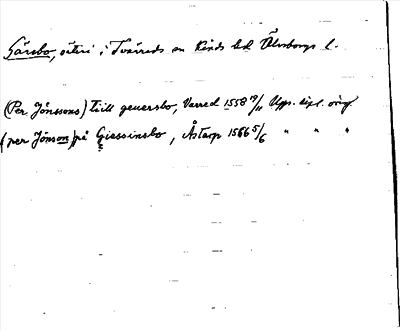 Gäsebo, säteri i Tvärreds sn Kinds hd Älvsborgs l.
(Per Jönssons) tiill geuersbo, Varred 1558 19/11 Upps. dipl. orig
(per Jönson) på Giessinsbo, Åstarp 1566 5/6 " " "